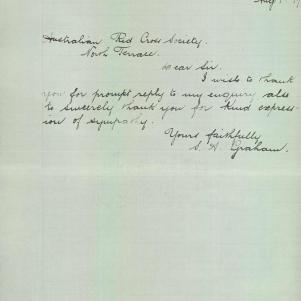 Australian Red Cross Society.
North Terrace.
Dear Sir.
I wish to thank
you for prompt reply to my enquiry also
to sincerely thank you for kind express-
ion of sympathy.
Yours faithfully
S. A. Graham.